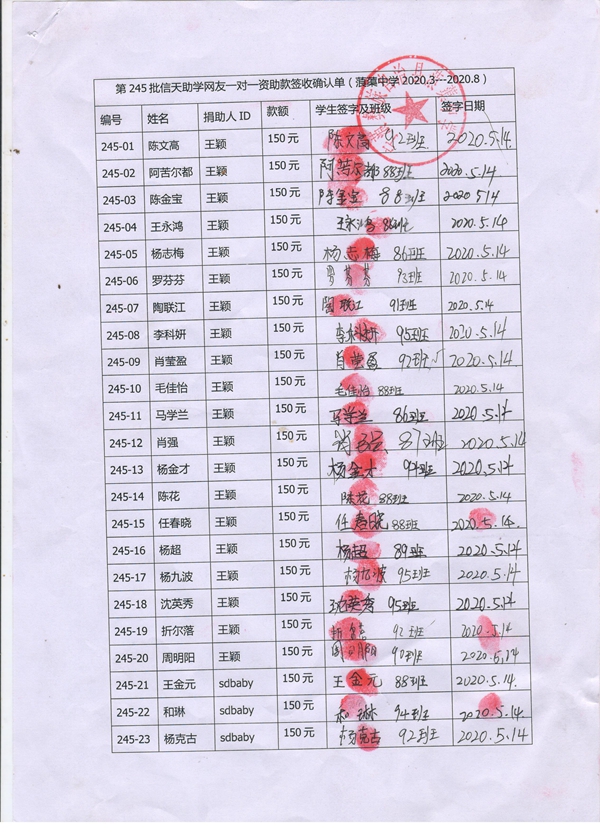 第245批信天助学网友一对一资助款签收确认单（蒗蕖中学2020.3---2020.8）
编号 姓名 捐助人ID 款额 学生签字及班级 签字日期
245-01 陈文高 王颖 150元 陈文高 92班 2020.5.14
245-02 阿苦尔都 王颖 150元 阿苦尔都 88班 2020.5.14
245-03 陈金宝 王颖 150元 陈金宝 88班 2020 5 14
245-04 王永鸿 王颖 150元 王永鸿 2020.5.14
245-05 杨志梅 王颖 150元 杨志梅 86班 2020.5.14
245-06 罗芬芬 王颖 150元 罗芬芬 93班 2020.5.14
245-07 陶联江 王颖 150元 陶联江 91班 2020.5.4
245-08 李科妍 王颖 150元 李科妍 95班 2020.5.14
245-09 肖莹盈 王颖 150元 肖莹盈 92班 2020.5.14
245-10 毛佳怡 王颖 150元 毛佳怡 88班 2020.5.14
245-11 马学兰 王颖 150元 马学兰 86班 2020.5.14
245-12 肖强 王颖 150元 肖强 87班 2020.5.14
245-13 杨金才 王颖 150元 杨金才 94班 2020.5.14
245-14 陈花 王颖 150元 陈花 88班 2020.5.14
245-15 任春晓 王颖 150元 任春晓 88班 2020.5.14.
245-16 杨超 王颖 150元 杨超 89班 2020.5.14
245-17 杨九波 王颖 150元 杨九波 95班 2020.5.14
245-18 沈英秀 王颖 150元 沈英秀 95班 2020.5.14
245-19 折尔落 王颖 150元 92班 2020.5.14
245-20 周明阳 王颖 150元 周明阳 90班 2020.5.14
245-21 王金元 sdbaby 150元 王金元 88班 2020.5.14.
245-22 和琳 sdbaby 150元 和琳 94班 2020.5.14.
245-23 杨克古 sdbaby 150元 杨克古 92班 2020.5.14